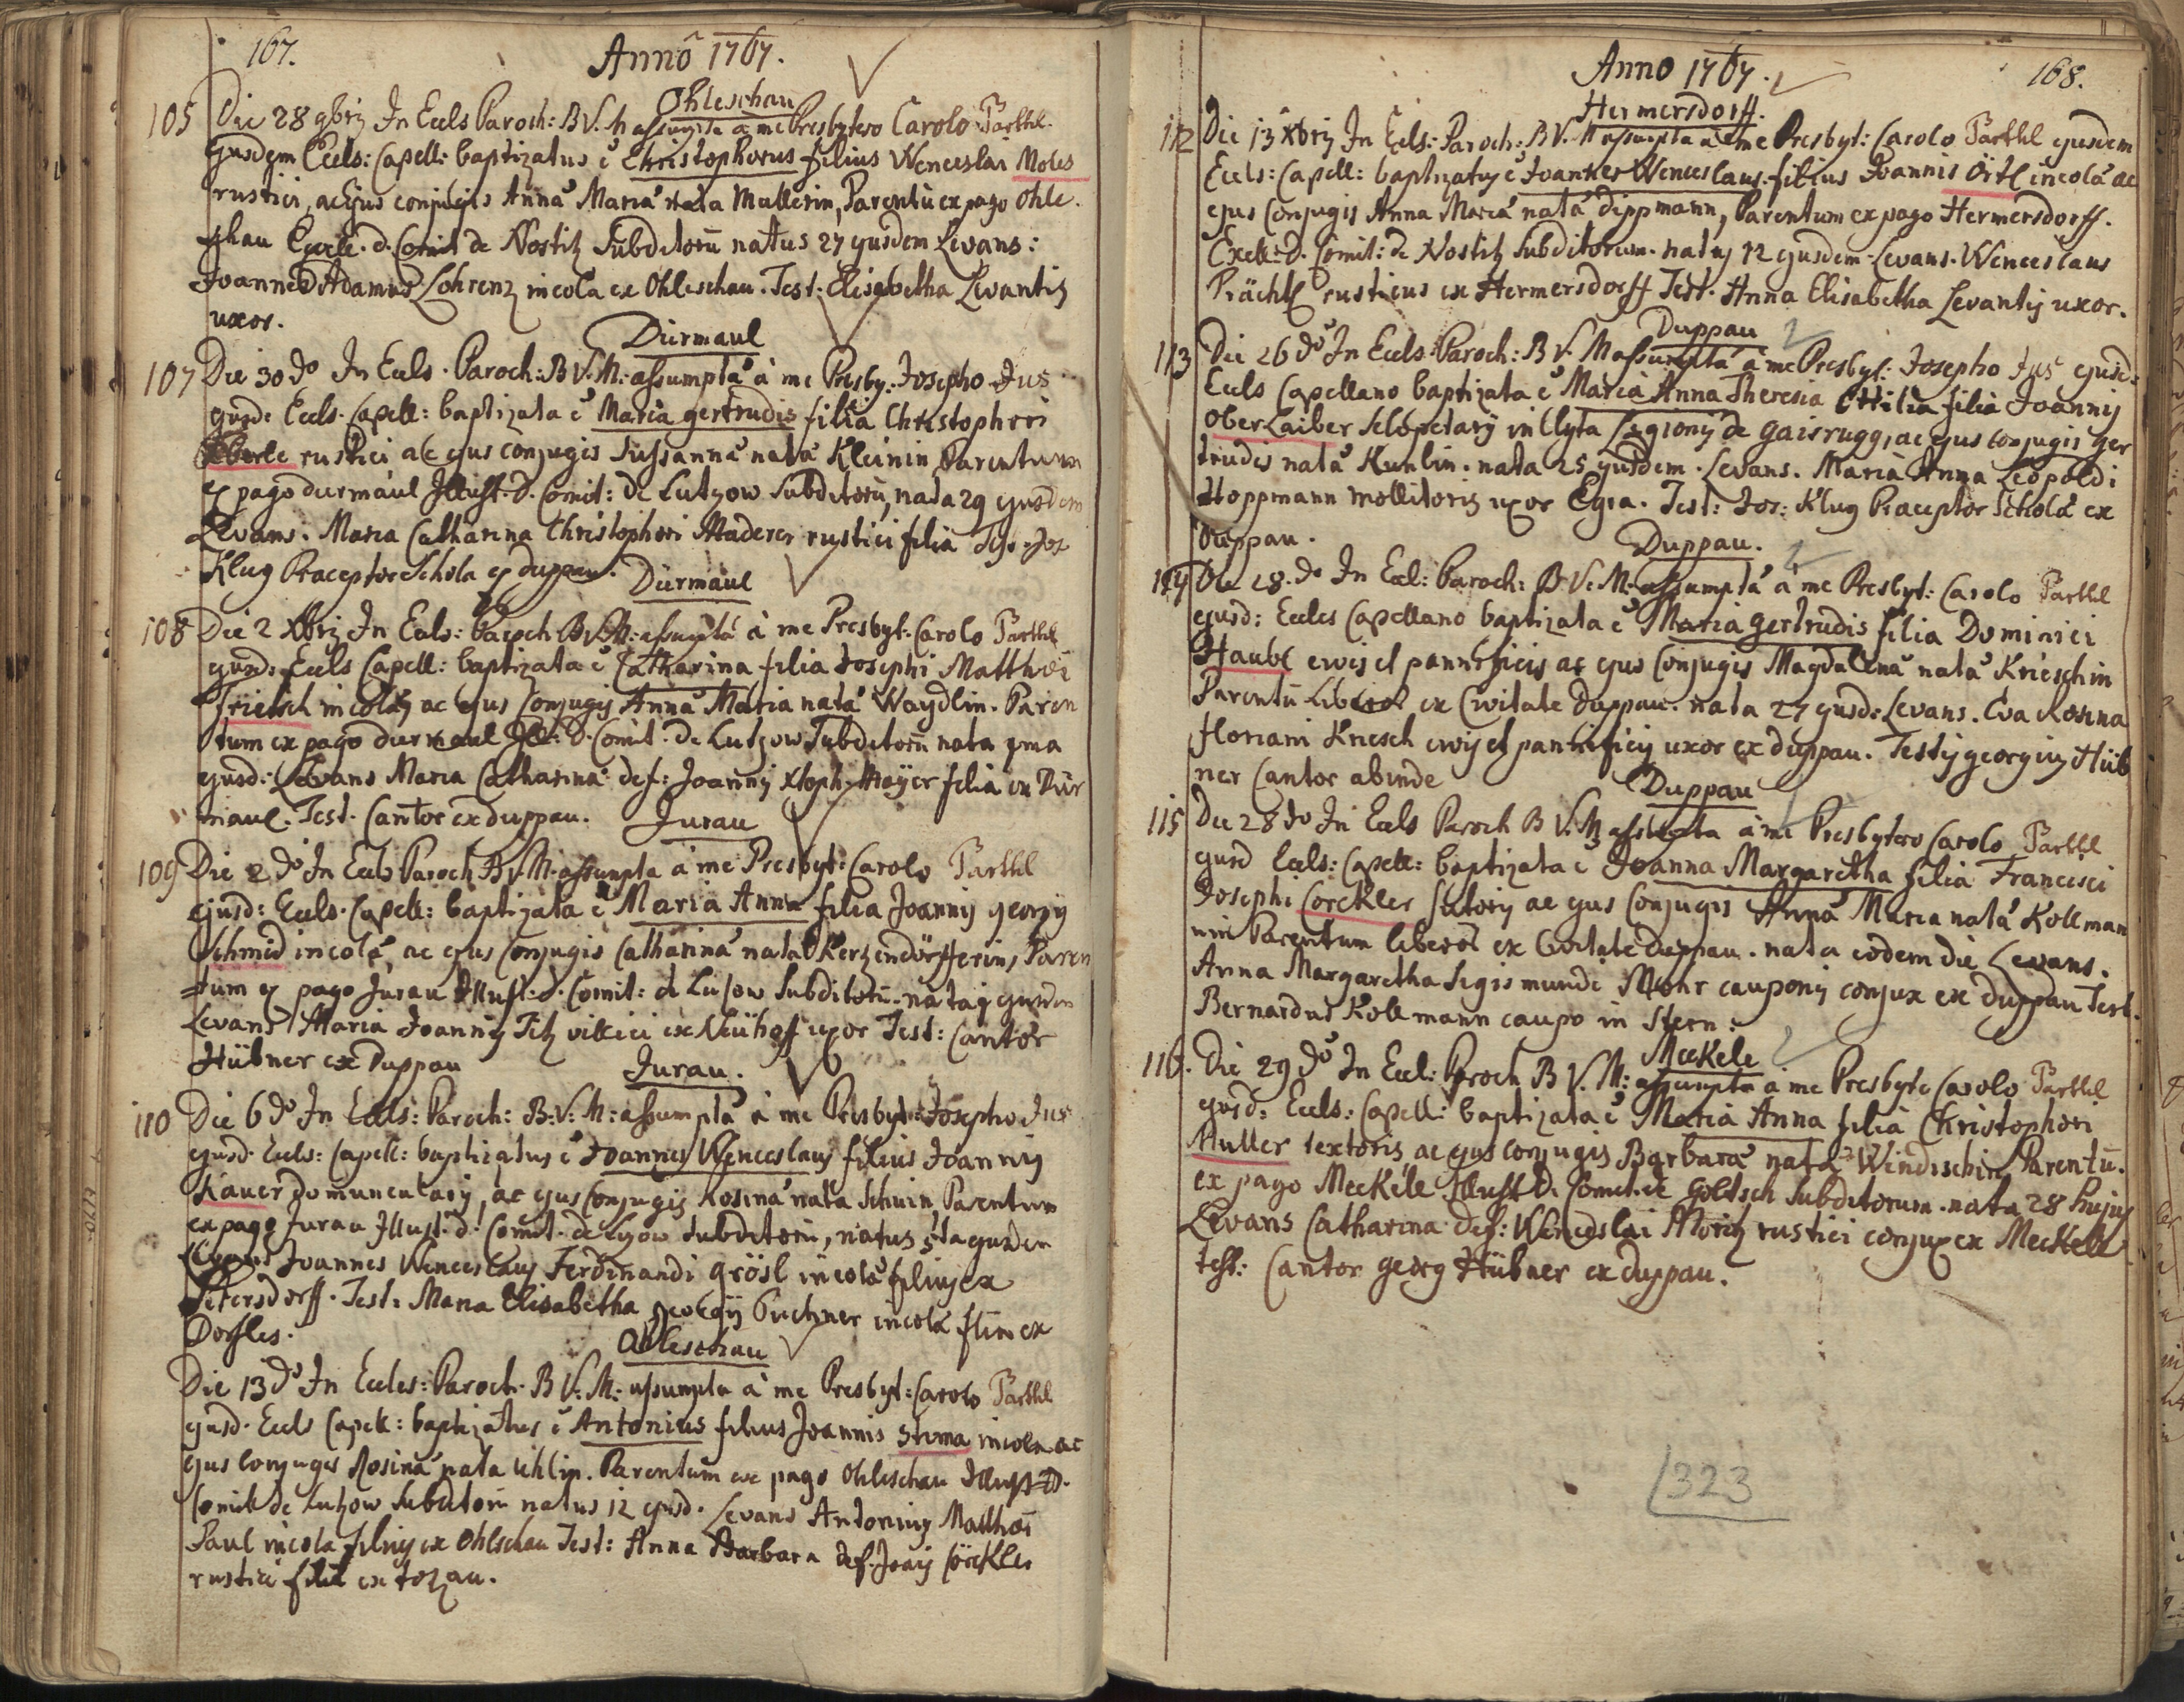 167.
Anno 1767.
Ohleschau
105 Die 28 9bris In Eccls Paroch: B V. M assumpta à me Presbytero Carolo Parthl
Ejusdem Eccls: Capell: baptizatus ẽ Christophorus filius Wenceslai Moles
rustici, ac Ejus conjugis Anna Maria nata Mullerin, Parentũ ex pago Ohle.
schau Excell. d. Comit de Nostitz Subditorũ natus 27 ejusdem Levans:
Joannes Adamus Lohrenz incola ex Ohleschau. Test: Elisabetha Levantis
uxor.
Dürmaul
107 Die 30 do In Eccls. Paroch: B V. M: assumpta à me Presby: Josepho Jus
ejusd: Eccls. Capell: baptizata ẽ Maria gertrudis filia Christophori
Eberle rustici ac ejus conjugis Sussanna nata Kleinin Parentum
ex pago durmaul Illust. d. Comit: de Lutzow Subditorũ, nata 29 ejusdem
Levans. Maria Catharina Christophori Maderer rustici filia Test. Jos
Klug Praceptor Schola ex duppau.
Dürmaul
108 Die 2 Xbris In Eccls: Paroch B V. M: assumpta à me Presbyt: Carolo Parthl
ejusd: Eccls Capell: baptizata ẽ Catharina filia Josephi Matthæi
Frietsch incolæ ac ejus Conjugis Anna Maria nata Waydlin. Paren
tum ex pago durmaul Ill: D. Comit. de Lutzow Subditorũ nata 1ma
ejusd: Levans Maria Catharina def: Joannis Xtoph Mayer filia ex Dür
maul. Test. Cantor ex duppau.
Jurau
109 Die 2 do In Eccls Paroch B V. M. assumpta à me Presbyt: Carolo Parthl
ejusd: Eccls. Capell: baptizata ẽ Maria Anna filia Joannis georgy
Schmid incola, ac ejus Conjugis Catharina nata Kerzendörfferin, Paren
tum ex pago Jurau Illust. d. Comit: de Luzow Subditorũ. nata ejusdem
Levans Maria Joannis Titz villici ex Neuhoff uxor Test: Cantor
Hübner ex Duppau
Jurau.
110 Die 6 do In Eccls: Paroch: B: V: M: assumpta à me Presbyt: Josepho Jus
ejusd. Eccls: Capell: baptizatus ẽ Joannes Wenceslaus filius Joannis
Kauer domuncularij, ac ejus Conjugis Rosina nata Schuin, Parentum
ex pago Jurau Illust. d. Comit. de Lyzow subditorũ, natus 5ta ejusdem
Levans Joannes Wenceslaus Ferdinandi grösl incolæ filius ex
Petersdorff. Test: Maria Elisabetha georgij Puchner incolæ filia ex
Dorfles.
Ohleschau
Die 13 do In Eccles: Paroch. B V. M. assumpta à me Presbyt: Carolo Parthl
ejusd. Eccls Capell: baptizatus ẽ Antonius filius Joannis Sturma incola ac
ejus Conjugis Rosina nata Uhlin. Parentum ex pago Ohleschau Illust D.
Comit de Lutzow Subditorũ natus 12 ejusd. Levans Antonius Mathæi
Paul incola filius ex Ohlschau Test: Anna Barbara def. Joais Cörckler
rustici filia ex totzau.
Anno 1767.
168.
Hermersdorff.
112 Die 13 Xbris In Eccls: Paroch: B V. M assumpta à me Presbyt: Carolo Parthl ejusdem
Eccls: Capell: baptizatus ẽ Joannes Wenceslaus filius Joannis Örtl incola ac
ejus Conjugis Anna Maria nata dippmann, Parentum ex pago Hermersdorff.
Excell: D. Comit: de Nostitz Subditorum. natus 12 ejusdem. Levans. Wenceslaus
Prächtl rusticus ex Hermersdorff Test. Anna Elisabetha Levantis uxor.
Duppau
113 Die 26 do In Eccls. Paroch: B V. M assumpta à me Presbyt: Josepho Jus ejusd:
Eccls Capellano baptizata ẽ Maria Anna Theresia Ottilia filia Joannis
Oberlaiber sclopetarij inclyta Legionis de gaisrugg, ac ejus conjugis ger
trudis nata Kunlin. nata 25 ejusdem. Levans. Maria Anna Leopoldi
Hoppmann mollitoris uxor Egra. Test: Jos: Klug Praceptor Schola ex
duppau.
Duppau.
114 Die 28. do In Eccl: Paroch: B: V: M: assumpta à me Presbyt: Carolo Parthl
ejusd: Eccles Capellano baptizata ẽ Maria gertrudis filia Dominici
Haubl civis et pannificis ac ejus Conjugis Magdalena nata Krieschin
Parentũ Liberor ex Civitate duppau. nata 27 ejusd: Levans. Eva Rosina
floriani Kriesch civis et pannificis uxor ex duppau. Testis georgius Hüb
ner Cantor abinde
Duppau
115 Die 28 do In Eccls Paroch B V. M assumpta à me Presbytero Carolo Parthl
ejusd Eccls: Capell: baptizata ẽ Joanna Margaretha filia Francisci
Josephi Corckler sutoris ac ejus Conjugis Anna Maria nata Kollman
nin Parentum liberor ex Civitate duppau. nata eodem die Levans.
Anna Margaretha Segismundi Mohr cauponis conjux ex duppau Test.
Bernardus Kollmann caupo in Stern:
Meckele
116. Die 29 do In Eccl: Paroch B V. M: assumpta à me Presbyte Carolo Parthl
ejusd: Eccls: Capell: baptizata ẽ Maria Anna filia Christophori
Muller textoris ac ejus conjugis Barbara nata Windischin Parentũ.
ex pago Meckele Illust D. Comit. de Goltsch Subditorum. nata 28 hujus
Levans Catharina def: Wenceslai Moritz rustici conjux ex Meckele
test: Cantor georg Hübner ex duppau.
323